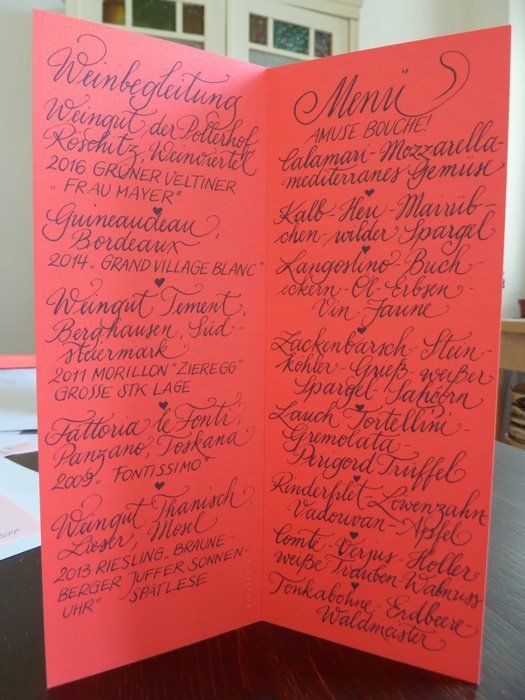 Weinbegleitung
Weingut der Pollerhof,
Röschitz, Weinviertel
2016 GRÜNER VELTINER
"FRAU MAYER"
Guineaudeau,
Bordeaux
2014 "GRAND VILLAGE BLANC"
Weingut Tement,
Berghausen, Süd-
steiermark
2011 MORILLON "ZIEREGG"
GROSSE STK LAGE
Fattoria le Fonti,
Panzano, Toskana
2009 "FONTISSIMO"
Weingut Thanisch,
Lieser, Mosel
2013 RIESLING, BRAUNE-
BERGER JUFFER SONNEN-
UHR" SPÄTLESE
Menü
AMUSE BOUCHE!
Calamari-Mozzarella-
mediterranes Gemüse
Kalb-Heu-Mairüb-
chen-wilder Spargel
Langostino-Buch-
eckern-Öl-Erbsen-
Vin Jaune
Zackenbarsch-Stein-
köhler-Grieß-weißer
Spargel-Saheörn
Lauch Tortellini-
Gremolata-
Perigord Trüffel
Rinderfilet-Löwenzahn
Vadouvan-Apfel
Comté-Verjus-Holler
weiße Trauben-Walnuss
Tonkabohne-Erdbeere-
Waldmeister